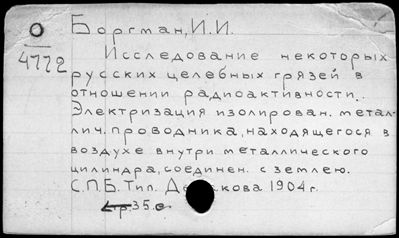 О
4772
Боргман, И.И.
Исследование некоторых
русских целебных грязей в
отношении радиоактивности.
Электризация изолирован. метал-
лич. проводника, находящегося в
воздухе внутри металлического
цилиндра, соединен. с землею.
С.П.Б. Тип. 1904 г.
35.с.